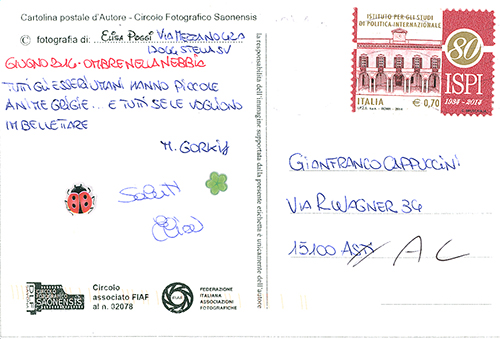 Cartolina postale d'Autore - Circolo Fotografico Saonensis
© fotografia di: Elisa Poggi VIA MEZZANO 42A
17048 STELLA SV
GIUGNO 2016 - OMBRE NELLA NEBBIA
TUTTI GLI ESSERI UMANI HANNO PICCOLE
ANIME GRIGIE... E TUTTI SE LE VOGLIONO
IMBELLETTARE
M. GORKIJ
Saluti
Elisa
Circolo
associato FIAF
al n. 02078
SAONENSIS
FIAF
FEDERAZIONE
ITALIANA
ASSOCIAZIONI
FOTOGRAFICHE
la responsabilità dell'immagine supportata dalla presente etichetta è unicamente dell'autore
ISTITUTO PER GLI STUDI
DI POLITICA INTERNAZIONALE
80
ISPI
1934 - 2014
ITALIA
€ 0,70
GIANFRANCO CAPPUCCINI
VIA R. WAGNER 34
15100 ASTI AL